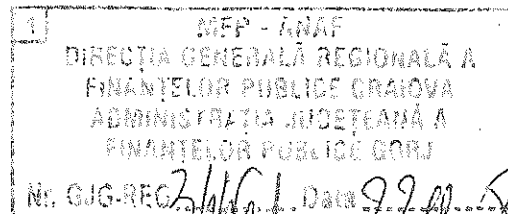 1
MFP - ANAF
DIRECȚIA GENERALĂ REGIONALĂ A
FINANȚELOR PUBLICE CRAIOVA
ADMINISTRAȚIA JUDEȚEANĂ A
FINANȚELOR PUBLICE GORJ
Nr. GJG-REG Data